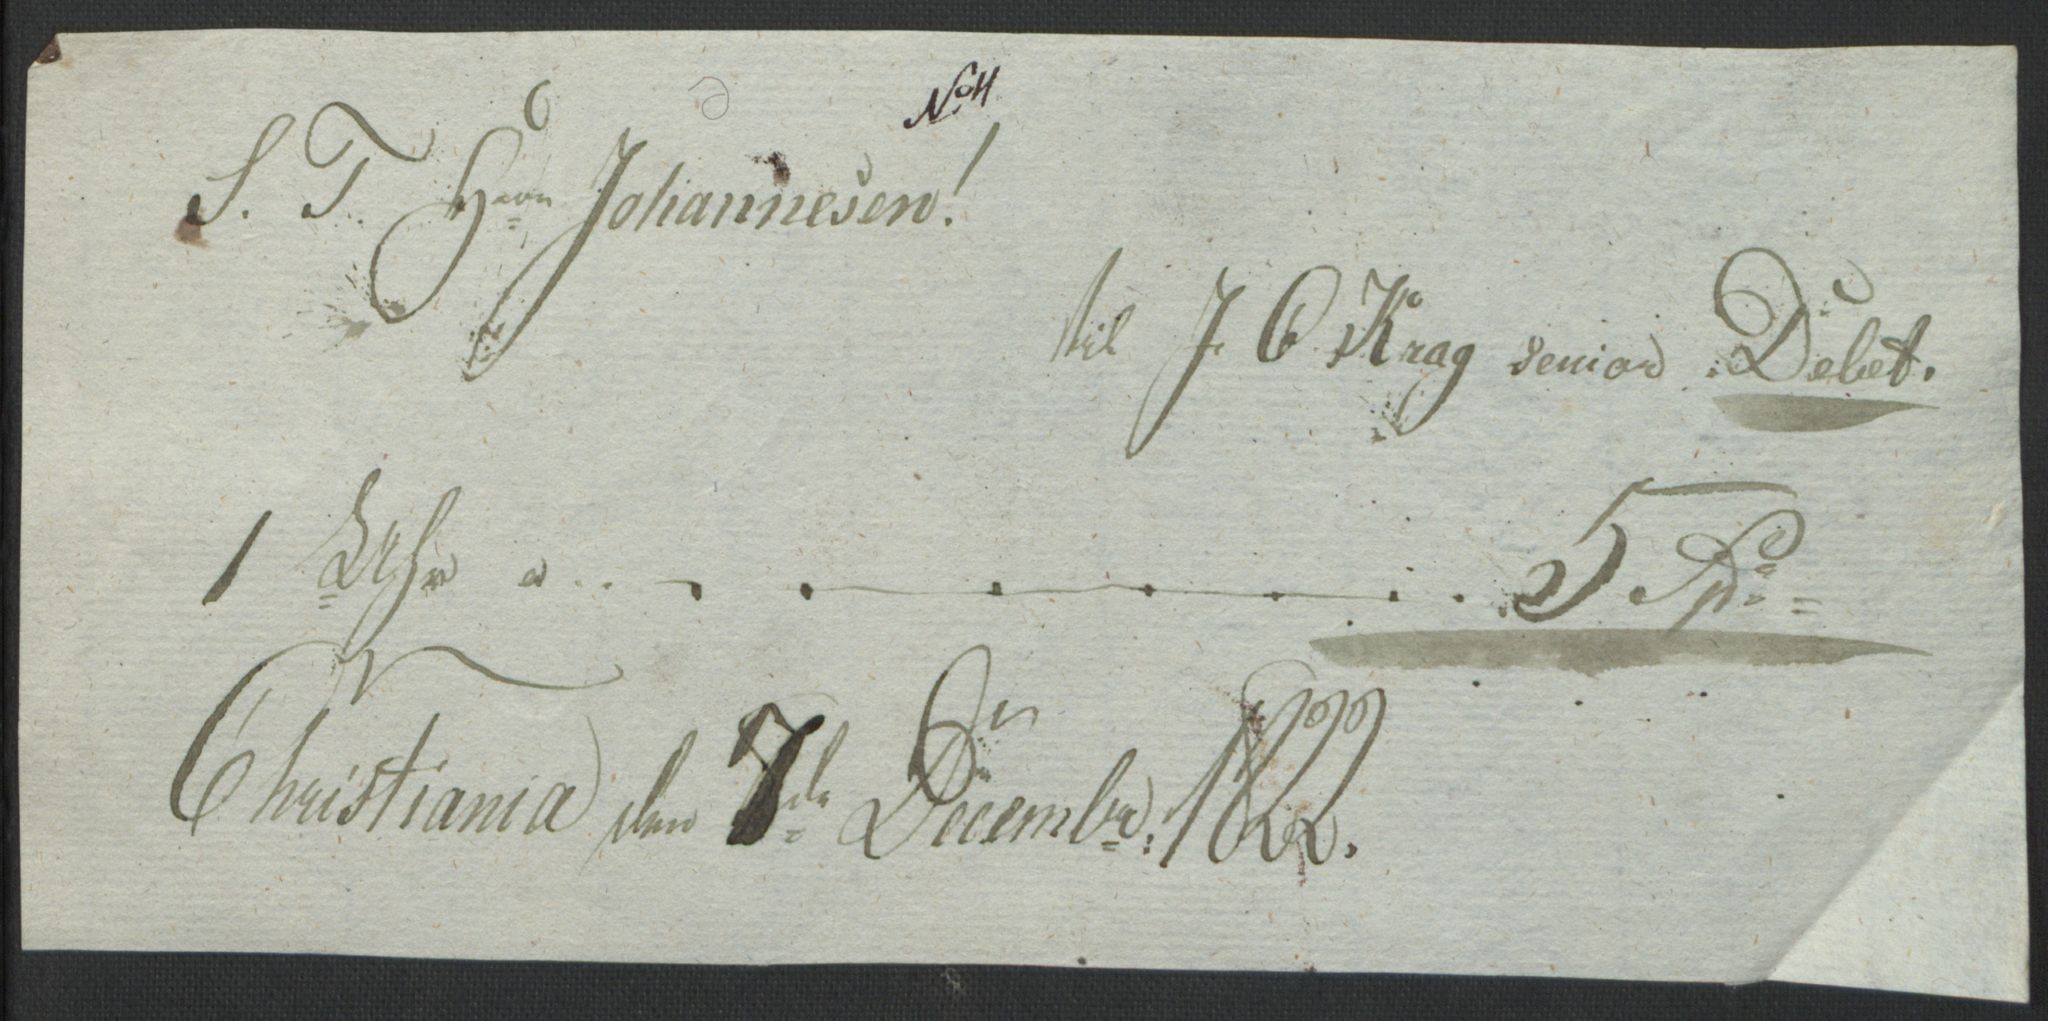 No 4
S. T. Herr Johannesen!
til J C Krag senior Debet.
1 Uhr a . . . . . . . . . 5 Spd
Christiania den 7de Decembr. 1822.